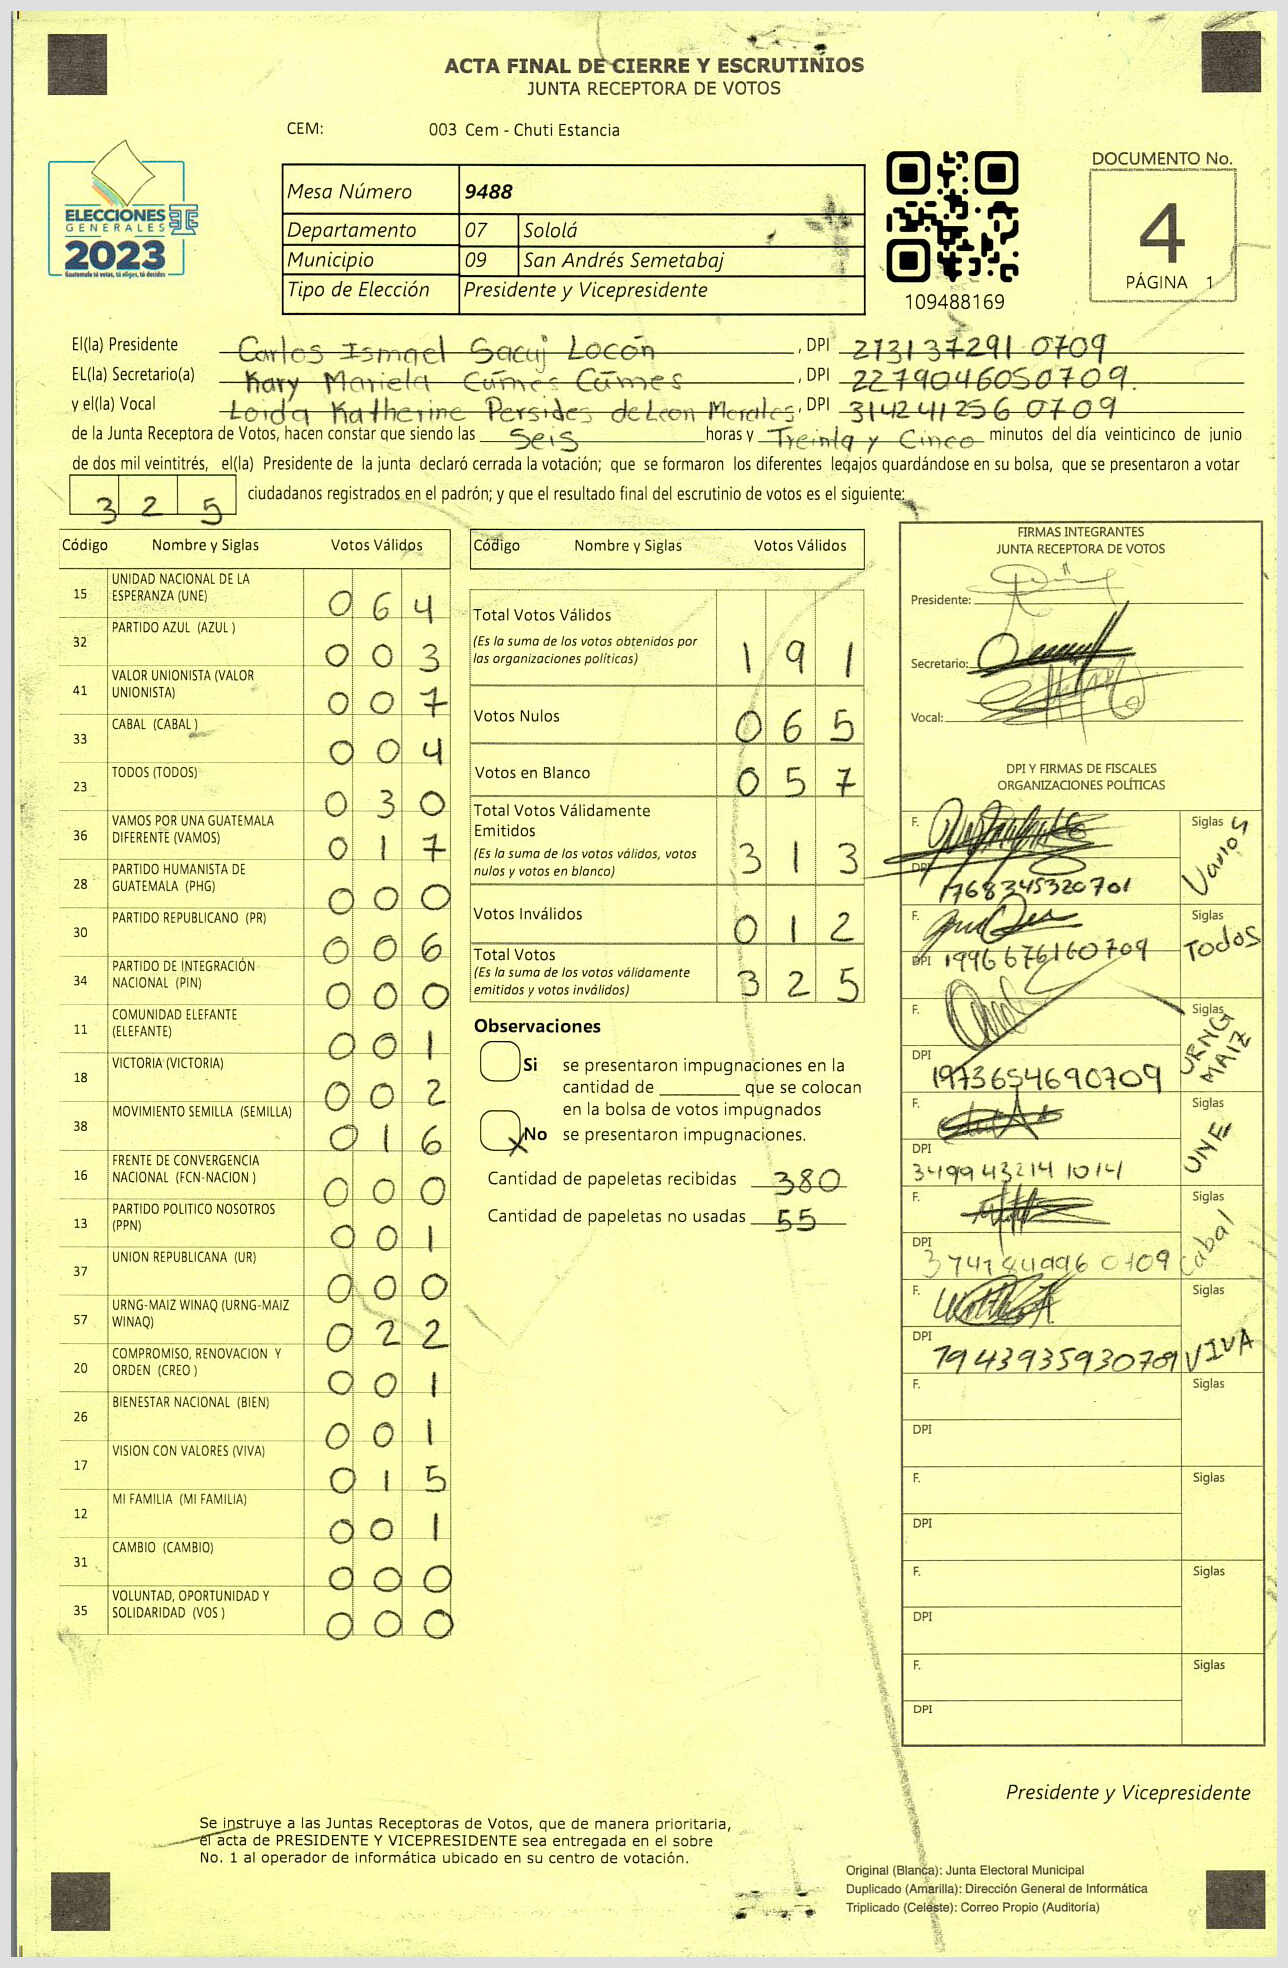 ACTA FINAL DE CIERRE Y ESCRUTINIOS
JUNTA RECEPTORA DE VOTOS
CEM: 003 Cem - Chuti Estancia
ELECCIONES
GENERALES
2023
Guatemala tú votas, tú eliges, tú decides
Mesa Número 9488
Departamento 07 Sololá
Municipio 09 San Andrés Semetabaj
Tipo de Elección Presidente y Vicepresidente
109488169
DOCUMENTO No.
4
PÁGINA 1
El(la) Presidente Carlos Ismael Sacuj Locón, DPI 273137291 0709
EL(la) Secretario(a) Kary Mariela Cúmes Cúmes, DPI 2279046050709.
y el(la) Vocal Loida Katherine Persides de Leon Morales, DPI 314241256 0709
de la Junta Receptora de Votos, hacen constar que siendo las Seis horas y Treinta y Cinco minutos del día veinticinco de junio
de dos mil veintitrés, el(la) Presidente de la junta declaró cerrada la votación; que se formaron los diferentes legajos guardándose en su bolsa, que se presentaron a votar
325 ciudadanos registrados en el padrón; y que el resultado final del escrutinio de votos es el siguiente:
Código Nombre y Siglas Votos Válidos
15 UNIDAD NACIONAL DE LA ESPERANZA (UNE) 064
32 PARTIDO AZUL (AZUL ) 003
41 VALOR UNIONISTA (VALOR UNIONISTA) 007
33 CABAL (CABAL ) 004
23 TODOS (TODOS) 030
36 VAMOS POR UNA GUATEMALA DIFERENTE (VAMOS) 017
28 PARTIDO HUMANISTA DE GUATEMALA (PHG) 000
30 PARTIDO REPUBLICANO (PR) 006
34 PARTIDO DE INTEGRACIÓN NACIONAL (PIN) 000
11 COMUNIDAD ELEFANTE (ELEFANTE) 001
18 VICTORIA (VICTORIA) 002
38 MOVIMIENTO SEMILLA (SEMILLA) 016
16 FRENTE DE CONVERGENCIA NACIONAL (FCN-NACION ) 000
13 PARTIDO POLITICO NOSOTROS (PPN) 001
37 UNION REPUBLICANA (UR) 000
57 URNG-MAIZ WINAQ (URNG-MAIZ WINAQ) 022
20 COMPROMISO, RENOVACION Y ORDEN (CREO ) 001
26 BIENESTAR NACIONAL (BIEN) 001
17 VISION CON VALORES (VIVA) 015
12 MI FAMILIA (MI FAMILIA) 001
31 CAMBIO (CAMBIO) 000
35 VOLUNTAD, OPORTUNIDAD Y SOLIDARIDAD (VOS ) 000
Código Nombre y Siglas Votos Válidos
Total Votos Válidos 191
(Es la suma de los votos obtenidos por
las organizaciones políticas)
Votos Nulos 065
Votos en Blanco 057
Total Votos Válidamente
Emitidos 313
(Es la suma de los votos válidos, votos
nulos y votos en blanco)
Votos Inválidos 012
Total Votos 325
(Es la suma de los votos válidamente
emitidos y votos inválidos)
Observaciones
Si se presentaron impugnaciones en la
cantidad de ________ que se colocan
en la bolsa de votos impugnados
X No se presentaron impugnaciones.
Cantidad de papeletas recibidas 380
Cantidad de papeletas no usadas 55
FIRMAS INTEGRANTES
JUNTA RECEPTORA DE VOTOS
Presidente:
Secretario:
Vocal:
DPI Y FIRMAS DE FISCALES
ORGANIZACIONES POLÍTICAS
F. Siglas
DPI 1768345320701
F. Siglas Todos
DPI 1996676160709
F. Siglas URNG MAIZ
DPI 1973654690709
F. Siglas UNE
DPI 3499432141014
F. Siglas Cabal
DPI
F. Siglas VIVA
DPI
F. Siglas
DPI
F. Siglas
DPI
F. Siglas
DPI
F. Siglas
DPI
Presidente y Vicepresidente
Se instruye a las Juntas Receptoras de Votos, que de manera prioritaria,
el acta de PRESIDENTE Y VICEPRESIDENTE sea entregada en el sobre
No. 1 al operador de informática ubicado en su centro de votación.
Original (Blanca): Junta Electoral Municipal
Duplicado (Amarilla): Dirección General de Informática
Triplicado (Celeste): Correo Propio (Auditoría)